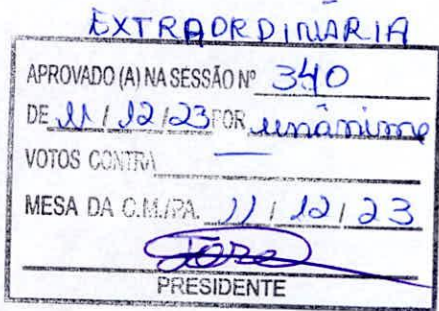 EXTRAORDINARIA
APROVADO (A) NA SESSÃO Nº 340
DE 11 / 12 / 23 POR unânime
VOTOS CONTRA —
MESA DA C.M./PA. 11 / 12 / 23
PRESIDENTE